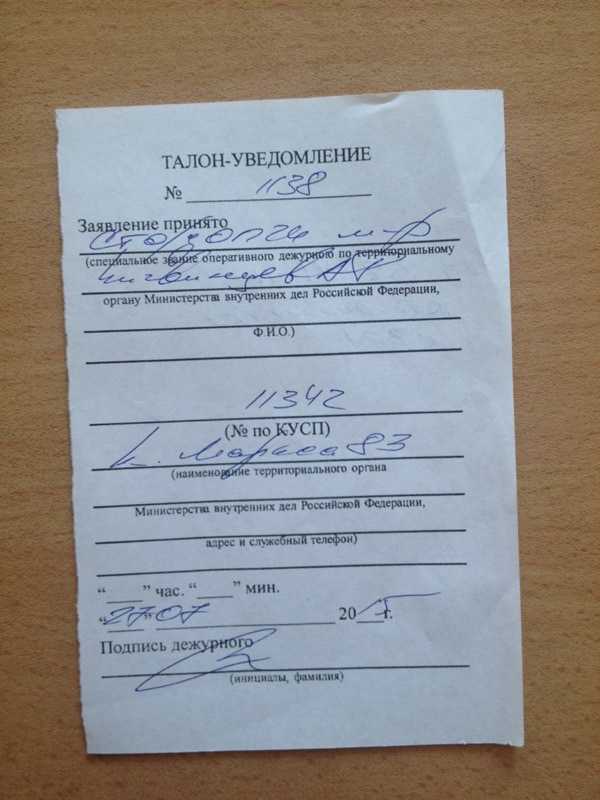 ТАЛОН-УВЕДОМЛЕНИЕ
№ 1138
Заявление принято
(специальное звание оперативного дежурного по территориальному
органу Министерства внутренних дел Российской Федерации,
Ф.И.О.)
11342
(№ по КУСП)
К. Маркса 83
(наименование территориального органа
Министерства внутренних дел Российской Федерации,
адрес и служебный телефон)
“____” час. “____” мин.
“27 07” 2015 г.
Подпись дежурного
(инициалы, фамилия)